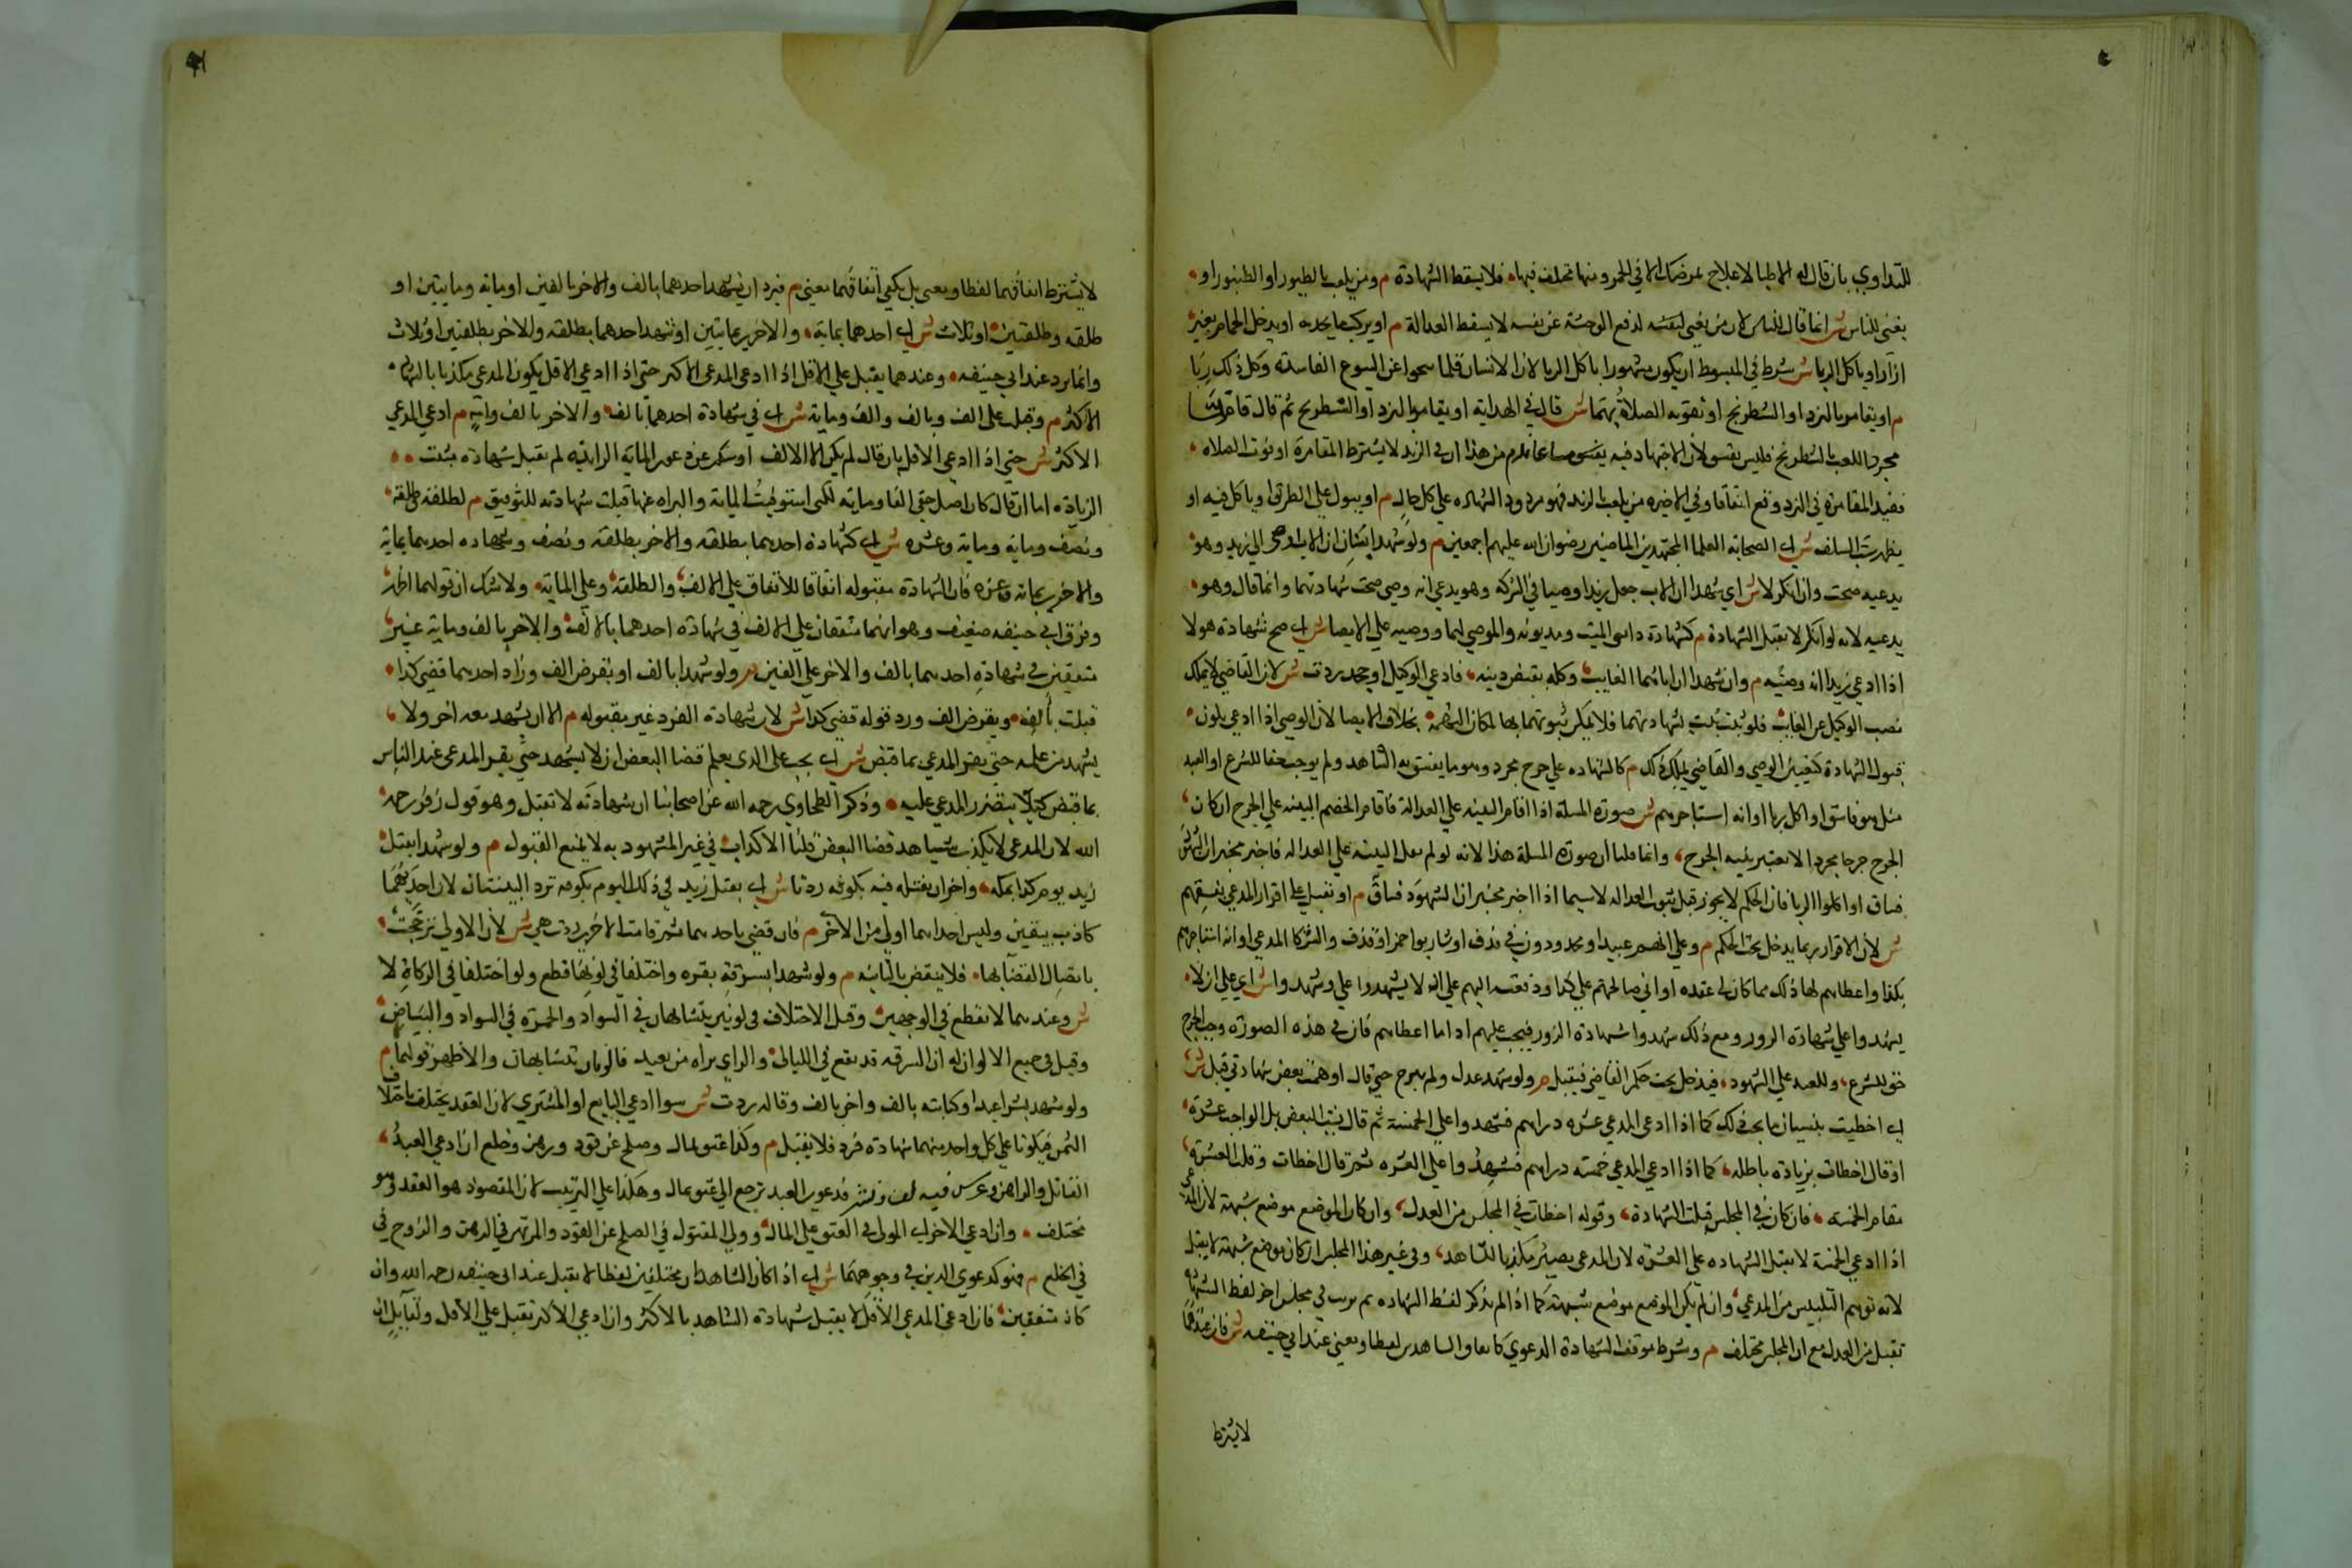 للتداوي بان قال له الاطبا لاعلاج لمرضك الا في الخمر ومنها مختلف فيها فلا يسقط الشهادة م ومن يلعب بالطيور او الطنبور او
يغني للناس ش انما قال للناس لان من يغني لنفسه لدفع الوحشة عن نفسه لا يسقط العدالة م او يركب ما يحد به او يدخل الحمام بغير
ازار او ياكل الربا ش شرط في المبسوط ان يكون مشهورا باكل الربا لان الانسان قلما ينجوا عن البيوع الفاسدة وكل ذلك ربا
م او يقامر بالنرد او الشطرنج او تفوته الصلاة بهما ش قال في الهداية او يقامر بالنرد او الشطرنج ثم قال فاما
مجرد اللعب بالشطرنج فليس بفسق لان للاجتهاد فيه مساغا فعلم من هذا ان في النرد لا يشترط المقامرة او فوت الصلاه
فقيد المقامرة في النرد وقع اتفاقا وفي الذخيره من يلعب بالنرد فهو مردود الشهاده على كل حال م او يبول على الطريق او ياكل فيه او
يظهر سب السلف ش اي الصحابة العلما المجتهدين الماضين رضوان الله عليهم اجمعين م ولو شهد ابنان ان الاب اوصى الي زيد وهو
يدعيه صحت وان انكر لا ش اي شهدا ان الاب جعل زيدا وصيا في التركه وهو يدعي انه وصي صحت شهادتهما وانما قال وهو
يدعيه لانه لو انكر لا تقبل الشهادة م كشهادة دايني الميت ومديونه والموصي لهما ووصيه علي الايصا ش اي صح شهادة هولا
اذا ادعي زيد انه وصيه م وان شهدا ان اباهما الغايب وكله بقبض دينه فادعي الوكيل او جحد ردت ش لان القاضي لا يملك
نصب الوكيل عن الغايب فلو ثبت يثبت بشهادتهما فلا يمكن ثبوتهما بها لمكان التهمة بخلاف الايصا لان الوصي اذا ادعي يكون
قبول الشهادة كتعيين الوصي والقاضي يملك ذلك م كالشهاده علي جرح مجرد وهو ما يفسق به الشاهد ولم يوجب حقا للشرع او العبد
مثل هو فاسق او اكل ربا او انه استاجرهم ش صورة المسلة اذا اقام البينه علي العدالة فاقام الخصم البينه علي الجرح ان كان
الجرح جرحا مجردا لا يعتبر بينة الجرح وانما قلنا ان صورة المسلة هذا لانه لو لم يقم البينه علي العداله فاخبر مخبر ان الشهود
فساق او اكلوا الربا فان الحكم لا يجوز قبل ثبوت العداله لا سيما اذا اخبر مخبر ان الشهود فساق م او تقبل على اقرار المدعي بفسقهم
ش لان الاقرار مما يدخل تحت الحكم م وعلي انهم عبيد او محدودون في قذف او شاربوا خمر او قذف والشركا المدعي او انه استاجرهم
بكذا واعطاهم لها ذلك مما كان لي عنده او اني صالحتهم علي كذا ودفعته اليهم علي ان لا يشهدوا علي وشهدوا ش اي علي ان لا
يشهدوا علي شهادة الزور ومع ذلك شهدوا شهادة الزور فيجب عليهم اداما اعطاهم فان في هذه الصورة وجب الجرح
حق للشرع وللعبد علي الشهود فيدخل تحت حكم القاضي فيقبل م ولو شهد عدل ولم يبرح حتي قال اوهمت بعض شهادتي قبل ش
اي اخطيت بنسيان ما يجب ذلك كما اذا ادعي المدعي عشره دراهم فشهدوا علي الخمسة ثم قال نسيت البعض بل الواجب عشرة
او قال اخطات بزيادة باطله كما اذا ادعي المدعي خمسه دراهم فشهدوا علي العشره ثم قال اخطات وقلت العشرة
مقام الخمسه فان كان في المجلس قبلت الشهادة وقوله اخطات في المجلس من العدل وان كان الموضع موضع شبهة لان المدعي
اذا ادعي الخمسة لا تقبل الشهاده علي العشرة لان المدعي يصير مكذبا للشاهد وفي غير هذا المجلس ان كان موضع شبهة لا يقبل
لانه توهم التلبيس من المدعي وان لم يكن الموضع موضع شبهة كما اذا لم يذكر لفظ الشهاده ثم يرتب في مجلس اخر لفظ الشهادة
تقبل من العدل مع ان المجلس مختلف م وشرط موافقة الشهادة الدعوي كاتفاق الشاهدين لفظا ومعني عند ابي حنيفه ش فان عندهما
لا يشترط
٤١
لا يشترط اتفاقهما لفظا ومعني بل يكفي اتفاقهما معني م فيرد ان يشهد احدهما بالف والاخر بالفين او ماية ومايتين او
طلقه وطلقتين او ثلاث ش اي احدهما بماية والاخر بمايتين او شهد احدهما بطلقه والاخر بطلقتين او ثلاث
وانما يرد عند ابي حنيفه وعندهما يقبل علي الاقل اذا ادعي المدعي الاكثر حتي اذا ادعي الاقل يكون المدعي مكذبا بالشهاد
الاكثر م وتقبل علي الف وبالف والف وماية ش اي في شهادة احدهما بالف والاخر بالف وماية م ادعي المدعي
الاكثر ش حتي اذا ادعي الاقل بان قال لم يكن الا الالف او سكت عن دعوي الماية الزايدة لم تقبل شهادة مثبت
الزياده اما ان قال كان اصل حقي الفا وماية لكني استوفيت الماية والبراه عنها قبلت شهادته للتوفيق م لطلقة طلقة
ونصف وماية وماية وعشره ش اي كشهادة احدهما بطلقه والاخر بطلقه ونصف وشهاده احدهما بماية
والاخر بماية وعشره فان الشهادة مقبوله اتفاقا للاتفاق علي الالف والطلقة وعلي الماية ولا شك ان قولهما اظهر
وفرق ابي حنيفه ضعيف وهو انهما متفقان علي الالف في شهادة احدهما بالالف والاخر بالف وماية غير
متفقين في شهادة احدهما بالف والاخر علي الفين م ولو شهدا بالف او بقرض الف وزاد احدهما قضي كذا
قبلت بالف وبقرض الف ورد قوله قضي كذا ش لان شهادة الفرد غير مقبوله م الا ان يشهد معه اخر ولا
يشهد من علمه حتي يقر المدعي بما قبض ش اي يجب علي الذي يعلم قضا البعض ان لا يشهد حتي يقر المدعي عند الناس
بما قبض كيلا يتضرر المدعي عليه وذكر الطحاوي رحمه الله عن اصحابنا ان شهادته لا تقبل وهو قول زفر رحمه
الله لان المدعي لا يكذب شاهد قضا البعض قلنا الاكذاب في غير المشهود به لا يمنع القبول م ولو شهدا بقتل
زيد يوم كذا بمكه واخران بقتله فيه بكوفه ردتا ش اي بقتل زيد في ذلك اليوم بكوفه ترد البينتان لان احديهما
كاذب بيقين وليس احداهما اولي من الاخر م فان قضي باحدهما ثم قامت الاخر ردت هي ش لان الاولي ترجحت
باتصال القضا بها فلا ينقض بالثانيه م ولو شهدا بسرقة بقره واختلفا في لونها قطع ولو اختلفا في الذكارة لا
ش وعندهما لا يقطع في الوجهين وقيل الاختلاف في لونين يتشابهان في السواد والحمرة في السواد والبياض
وقيل في جميع الالوان له ان السرقه قد يقع في الليالي والراي يراه من بعيد فاللونان يتشابهان والاظهر قولهما م
ولو شهد بشرا عبد او كتابته بالف واخر بالف وقاله ردت ش سوا ادعي البايع او المشتري لان العقد يختلف باختلاف
الثمن فيكونا علي كل واحد منهما شهادة فرد فلا يقبل م وكذا عتق بمال وصلح عن قود ورهن وخلع ان ادعي العبد
القاتل والراهن وعرس فيه لف ونشر فدعوي العبد ترجع الي عتق بمال وهكذا علي الترتيب لان المقصود هو العقد وهو
مختلف وان ادعي الاخر اي المولي في العتق علي المال وولي المقتول في الصلح عن القود والمرتهن في الرهن والزوج في
في الخلع م فهو كدعوي الدين في وجوهها ش اي اذا كان الشاهدان مختلفين لفظا لا يقبل عند ابي حنيفه رحمه الله وان
كانا متفقين فان ادعي المدعي الاقل لا يقبل شهادة الشاهد بالاكثر وان ادعي الاكثر تقبل علي الاقل ولقايل ان